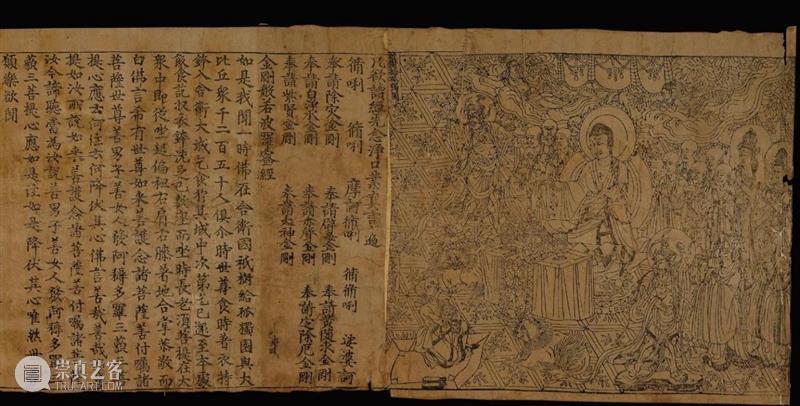 凡欲讀經先念淨口業真言一遍
脩唎 脩唎 摩訶脩唎 脩脩唎 娑婆訶
奉請除灾金剛 奉請辟毒金剛 奉請黃隨求金剛
奉請白淨水金剛 奉請赤聲金剛 奉請定除厄金剛
奉請紫賢金剛 奉請大神金剛
金剛般若波羅蜜經
如是我聞一時佛在舍衛國祇樹給孤獨園與大
比丘衆千二百五十人俱尒時世尊食時著衣持
鉢入舍衛大城乞食於其城中次第乞已還至本處
飯食訖收衣鉢洗足已敷座而坐時長老須菩提在大
衆中即從座起偏袒右肩右膝著地合掌恭敬而
白佛言希有世尊如來善護念諸菩薩善付囑諸
菩薩世尊善男子善女人發阿耨多羅三藐三
菩提心應云何住云何降伏其心佛言善哉善哉
提如汝所說如來善護念諸菩薩善付囑諸菩
汝今諦聽當為汝說善男子善女人發阿耨多羅
藐三菩提心應如是住如是降伏其心唯然世
願樂欲聞
崇真艺客
TRUEART.COM